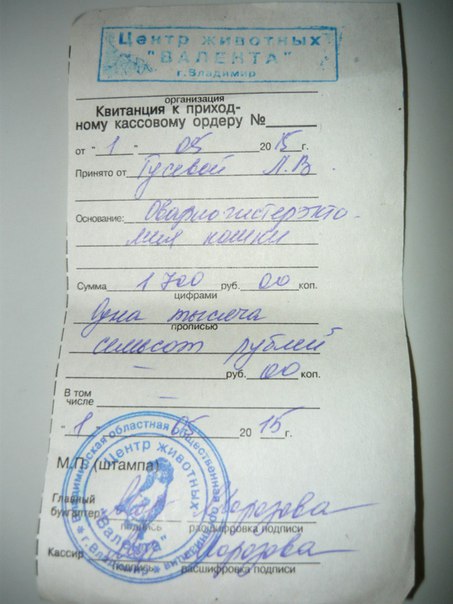 Центр животных
"ВАЛЕНТА"
г.Владимир
организация
Квитанция к приход-
ному кассовому ордеру №
от "1" 05 2015 г.
Принято от Гусевой Л.В
Основание: Овариогистерэкто
мия кошки
Сумма 1700 руб. 00 коп.
цифрами
Одна тысяча
прописью
семьсот рублей
— руб. 00 коп.
В том
числе —
"1" 05 2015 г.
М.П. (штампа)
Владимирская областная общественная организация
Центр животных
"Валента"
г. Владимир
Главный
бухгалтер Морозова
подпись расшифровка подписи
Кассир Морозова
подпись расшифровка подписи